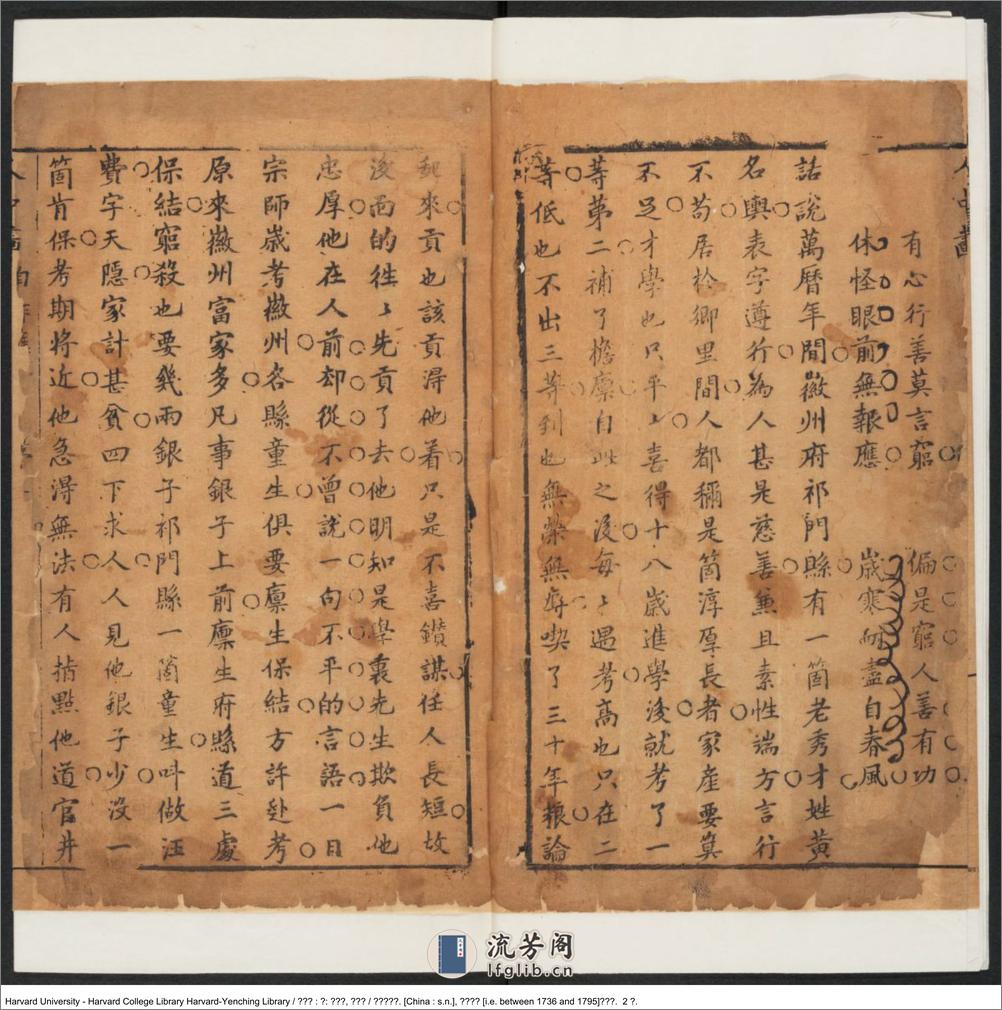 人中畫
有心行善莫言窮　偏是窮人善有功
休怪眼前無報應　歲寒耐盡自春風
話說萬曆年間徽州府祁門縣有一箇老秀才姓黃
名輿表字遵行為人甚是慈善兼且素性端方言行
不苟居於鄉里間人都稱是箇淳厚長者家產要算
不足才學也只平〻喜得十八歲進學後就考了一
等第二補了檐廩自此之後每〻遇考高也只在二
等低也不出三等到也無榮無辱喫了三十年粮論
起來貢也該貢得他着只是不喜鑽謀任人長短故
後面的往〻先貢了去他明知是學裏先生欺負他
忠厚他在人前却從不曾說一句不平的言語一日
宗師歲考徽州各縣童生俱要廩生保結方許赴考
原來徽州富家多凡事銀子上前廩生府縣道三處
保結窮殺也要幾兩銀子祁門縣一箇童生呌做汪
費字天隱家計甚貧四下求人人見他銀子少沒一
箇肯保考期將近他急得無法有人指點他道官井
流芳阁
lfglib.cn
Harvard University - Harvard College Library Harvard-Yenching Library / ??? : ?: ???, ??? / ?????. [China : s.n.], ???? [i.e. between 1736 and 1795]???.  2 ?.